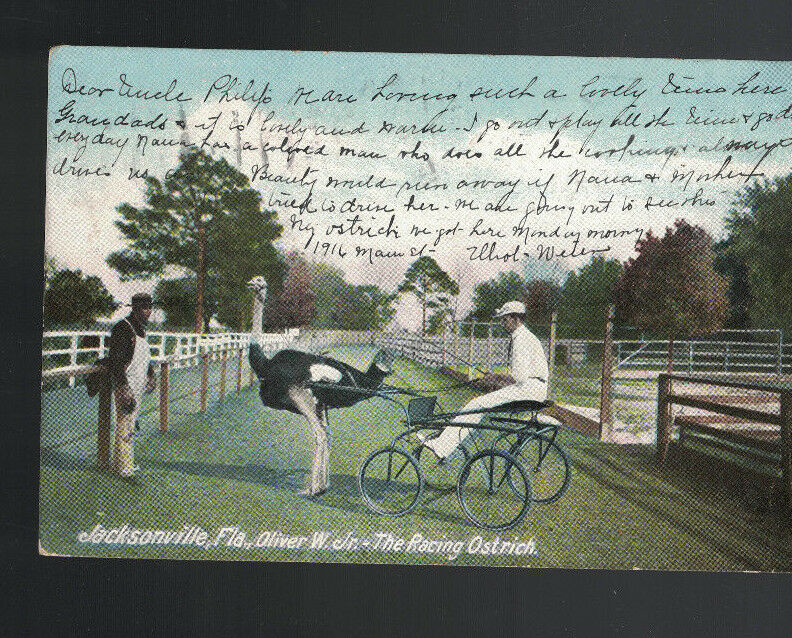 Dear Uncle Philip we are having such a lovely time here
Grandads & it is lovely and warm - I go out & play all the time &
everyday Nana has a colored man who does all the working & always
drives us Beauty would run away if Nana & Mother
tried to drive her - we are going out to see his
ostrich we got here Monday morny
1916 Main St -
Jacksonville, Fla., Oliver W. Jr. - The Racing Ostrich.